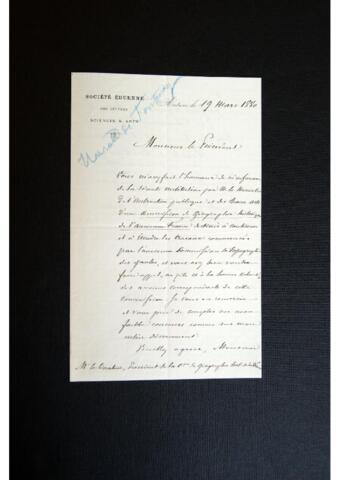 SOCIÉTÉ ÉDUENNE
DES LETTRES
SCIENCES & ARTS
Autun le 19 Mars 1880
Monsieur le Président
Vous m'avez fait l'honneur de m'informer
de la récente institution par M. le Ministre
de l'Instruction publique et des Beaux Arts
d'une Commission de Géographie historique
de l'ancienne France destinée à continuer
et à étendre les travaux commencés
par l'ancienne Commission de la Topographie
des Gaules, et vous avez bien voulu
faire appel au zèle et à la bonne volonté
des anciens correspondants de cette
Commission. Je vous en remercie
et vous prie de compter sur mon
faible concours comme sur mon
entier dévouement.
Veuillez agréer, Monsieur
M. le Président de la Con de Géographie